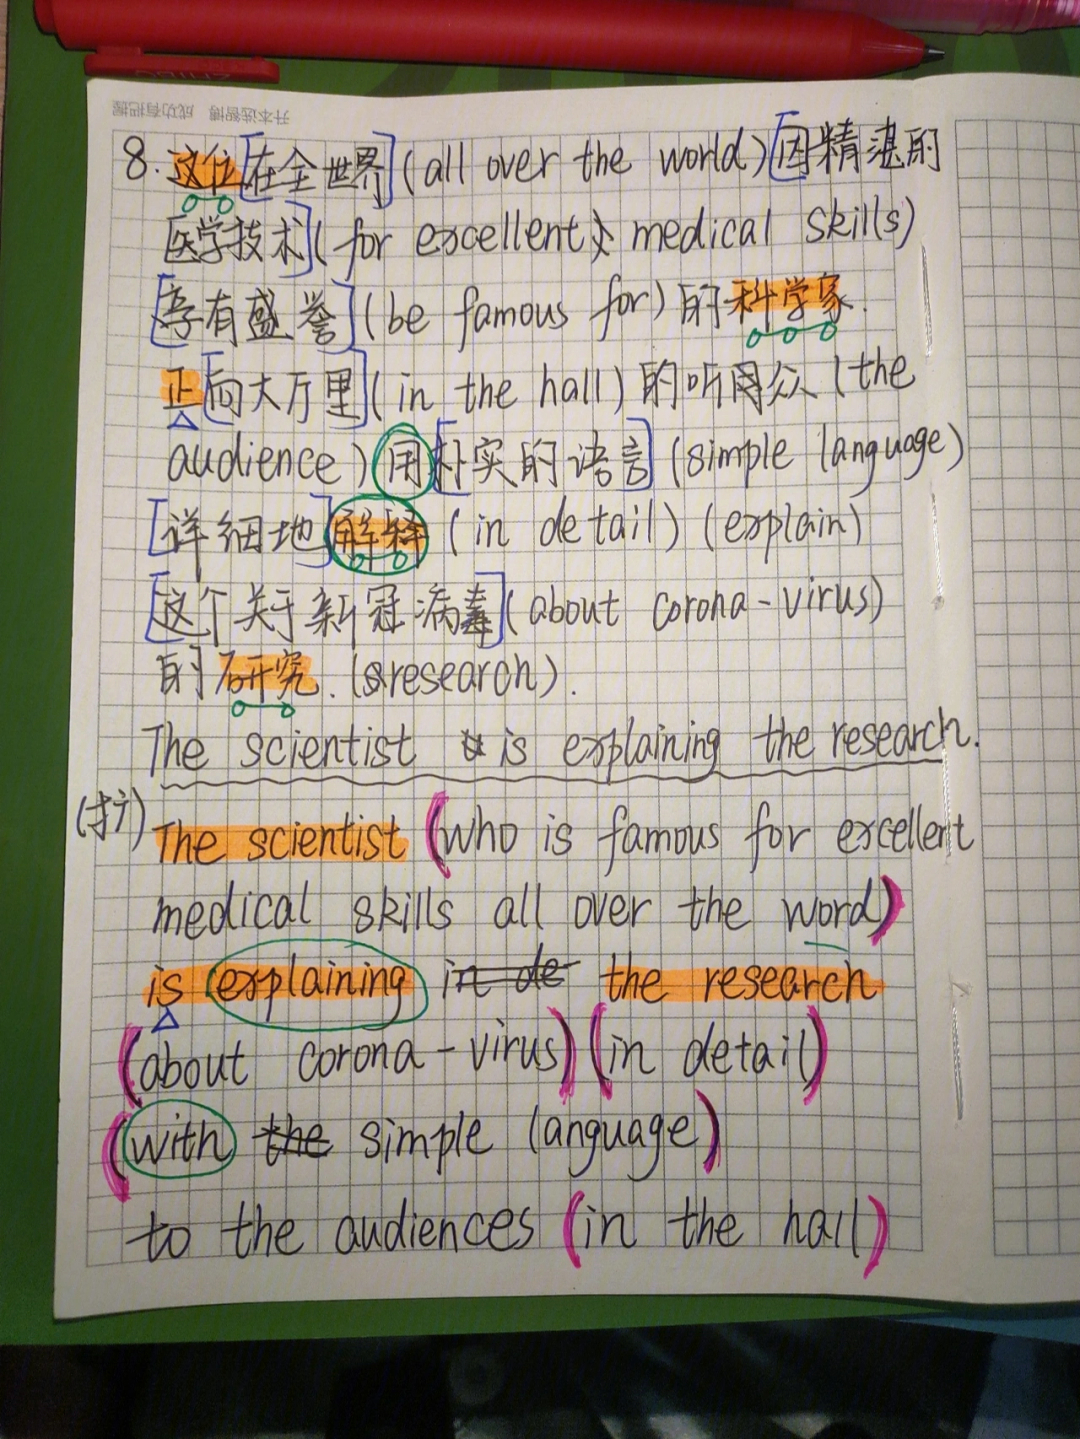 升本选智博 成功有把握
8. 这位[在全世界](all over the world)[因精湛的
医学技术](for excellent medical skills)
[享有盛誉](be famous for)的科学家.
正[向大厅里](in the hall)的听众(the
audience)用[朴实的语言](simple language)
[详细地]解释(in detail)(explain)
[这个关于新冠病毒](about corona-virus)
的研究.(research).
The scientist is explaining the research.
(扩)The scientist (who is famous for excellent
medical skills all over the word)
is explaining in de the research
(about corona-virus)(in detail)
(with the simple language)
to the audiences (in the hall)